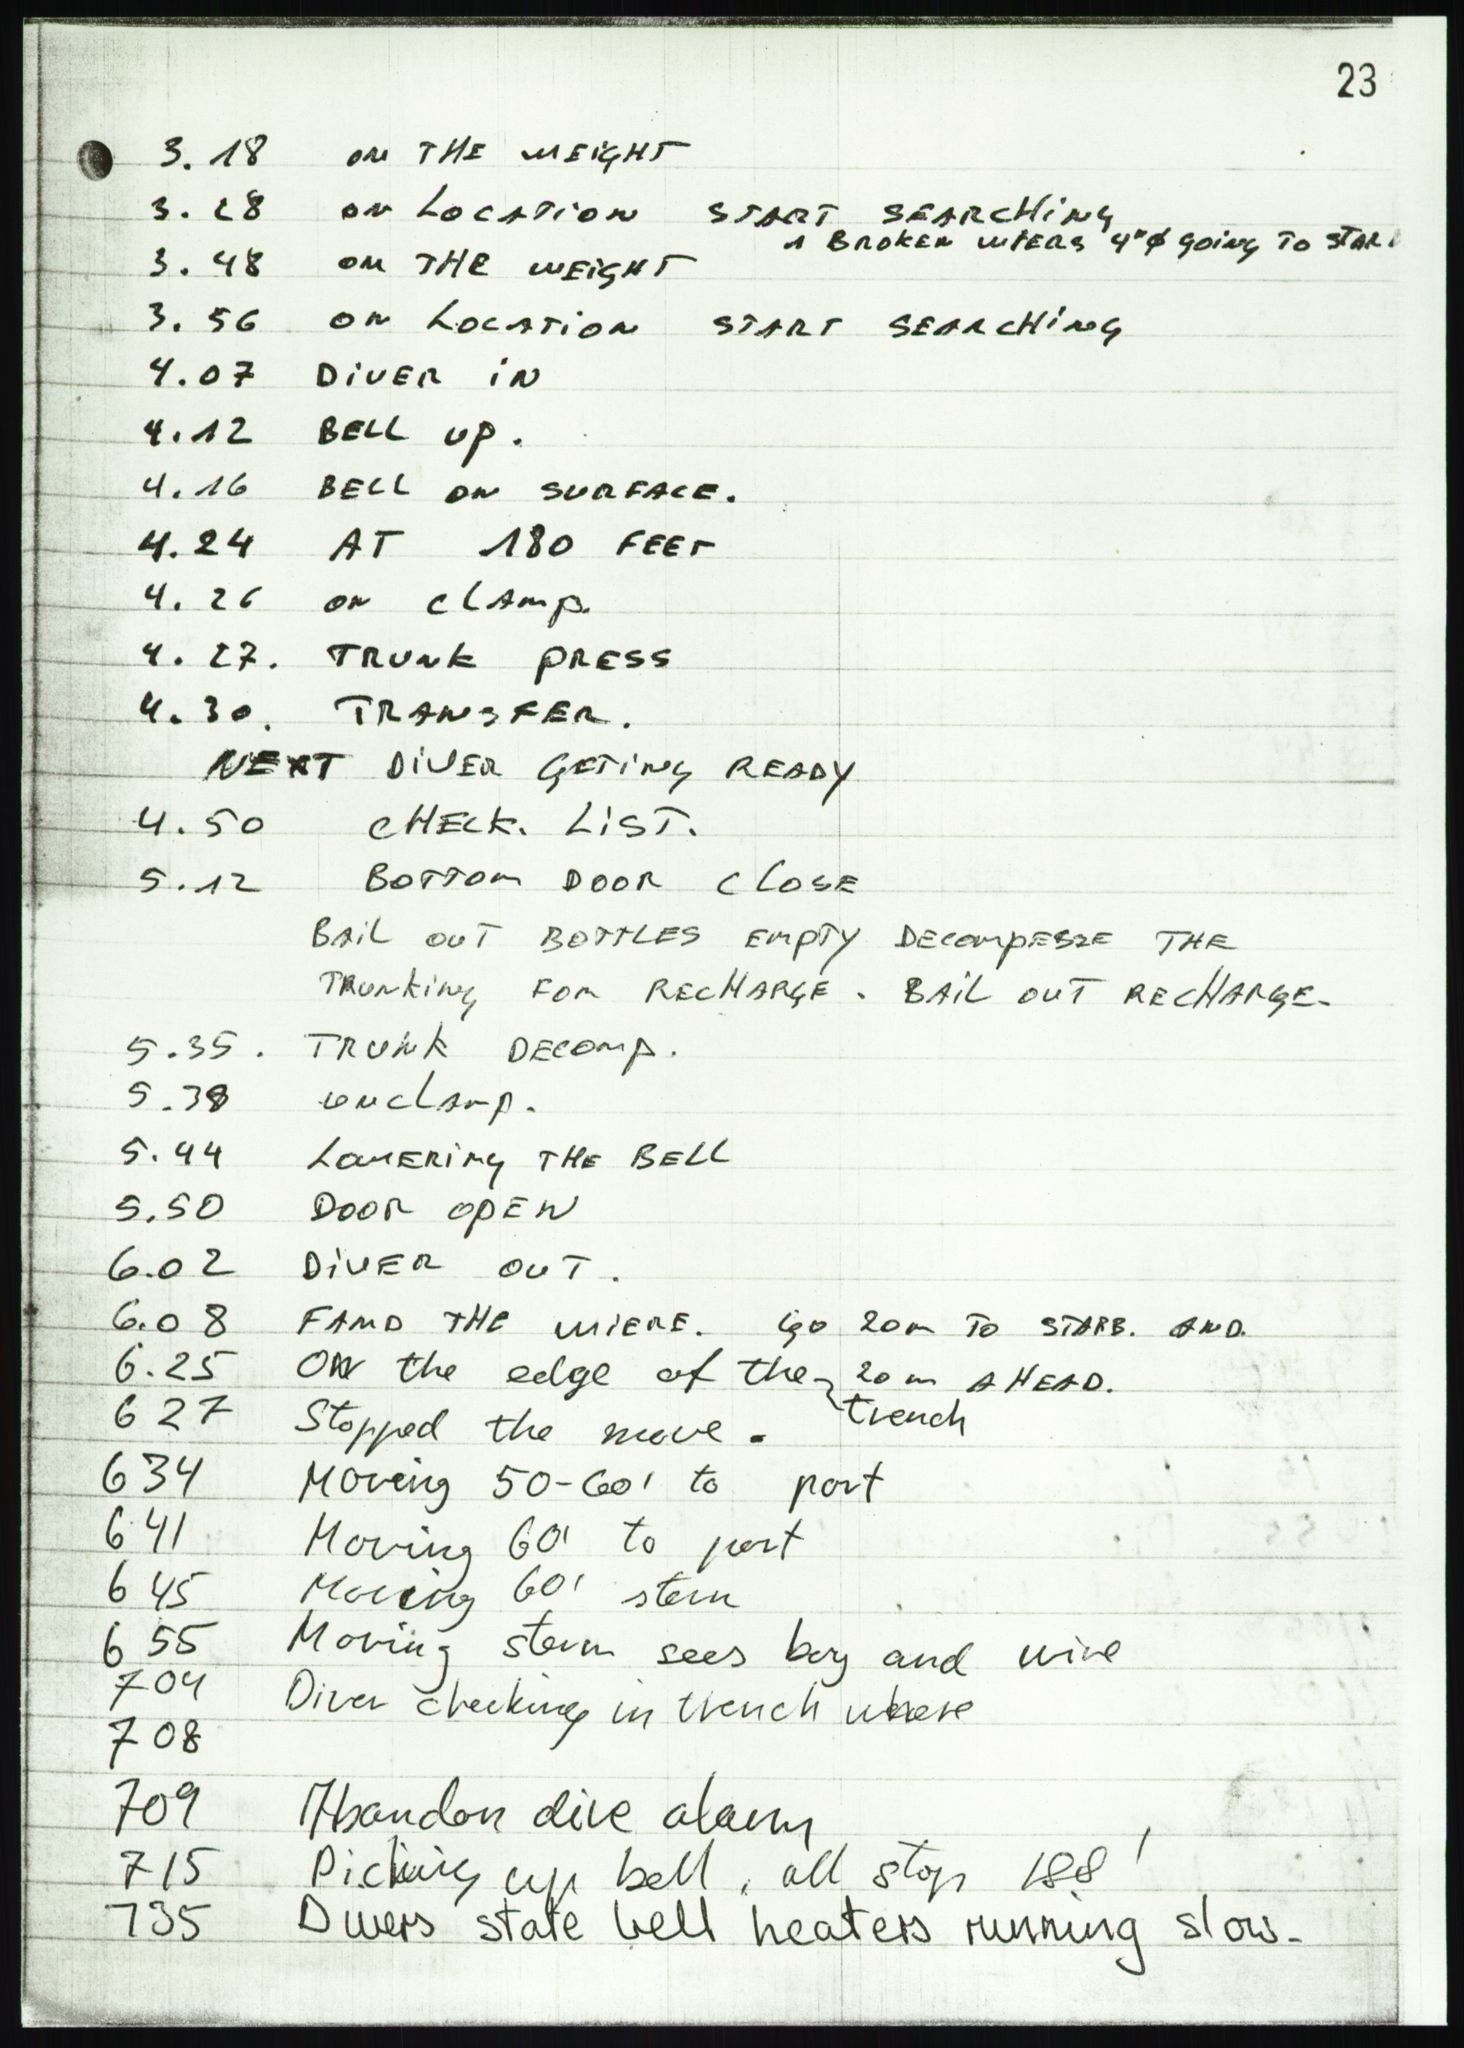 23
3.18 ON THE WEIGHT
3.28 ON LOCATION START SEARCHING
1 BROKEN WIERS 4"ø GOING TO STAR
3.48 ON THE WEIGHT
3.56 ON LOCATION START SEARCHING
4.07 DIVER IN
4.12 BELL UP.
4.16 BELL ON SURFACE.
4.24 AT 180 FEET
4.26 ON CLAMP.
4.27. TRUNK PRESS
4.30. TRANSFER.
NEXT DIVER GETING READY
4.50 CHECK. LIST.
5.12 BOTTOM DOOR CLOSE
BAIL OUT BOTTLES EMPTY DECOMPESZE THE
TRUNKING FOR RECHARGE. BAIL OUT RECHARGE.
5.35. TRUNK DECOMP.
5.38 UNCLAMP.
5.44 LOWERING THE BELL
5.50 DOOR OPEN
6.02 DIVER OUT.
6.08 FAND THE WIERE. GO 20m TO STARB. AND.
6.25 ON the edge of the 20m AHEAD.
trench
627 Stopped the move.
634 Moving 50-60' to port
641 Moving 60' to port
645 Moving 60' stern
655 Moving stern sees boy and wire
704 Diver checking in trench where
708
709 Abandon dive alarm
715 Picking up bell, all stop 188'
735 Divers state bell heaters running slow.